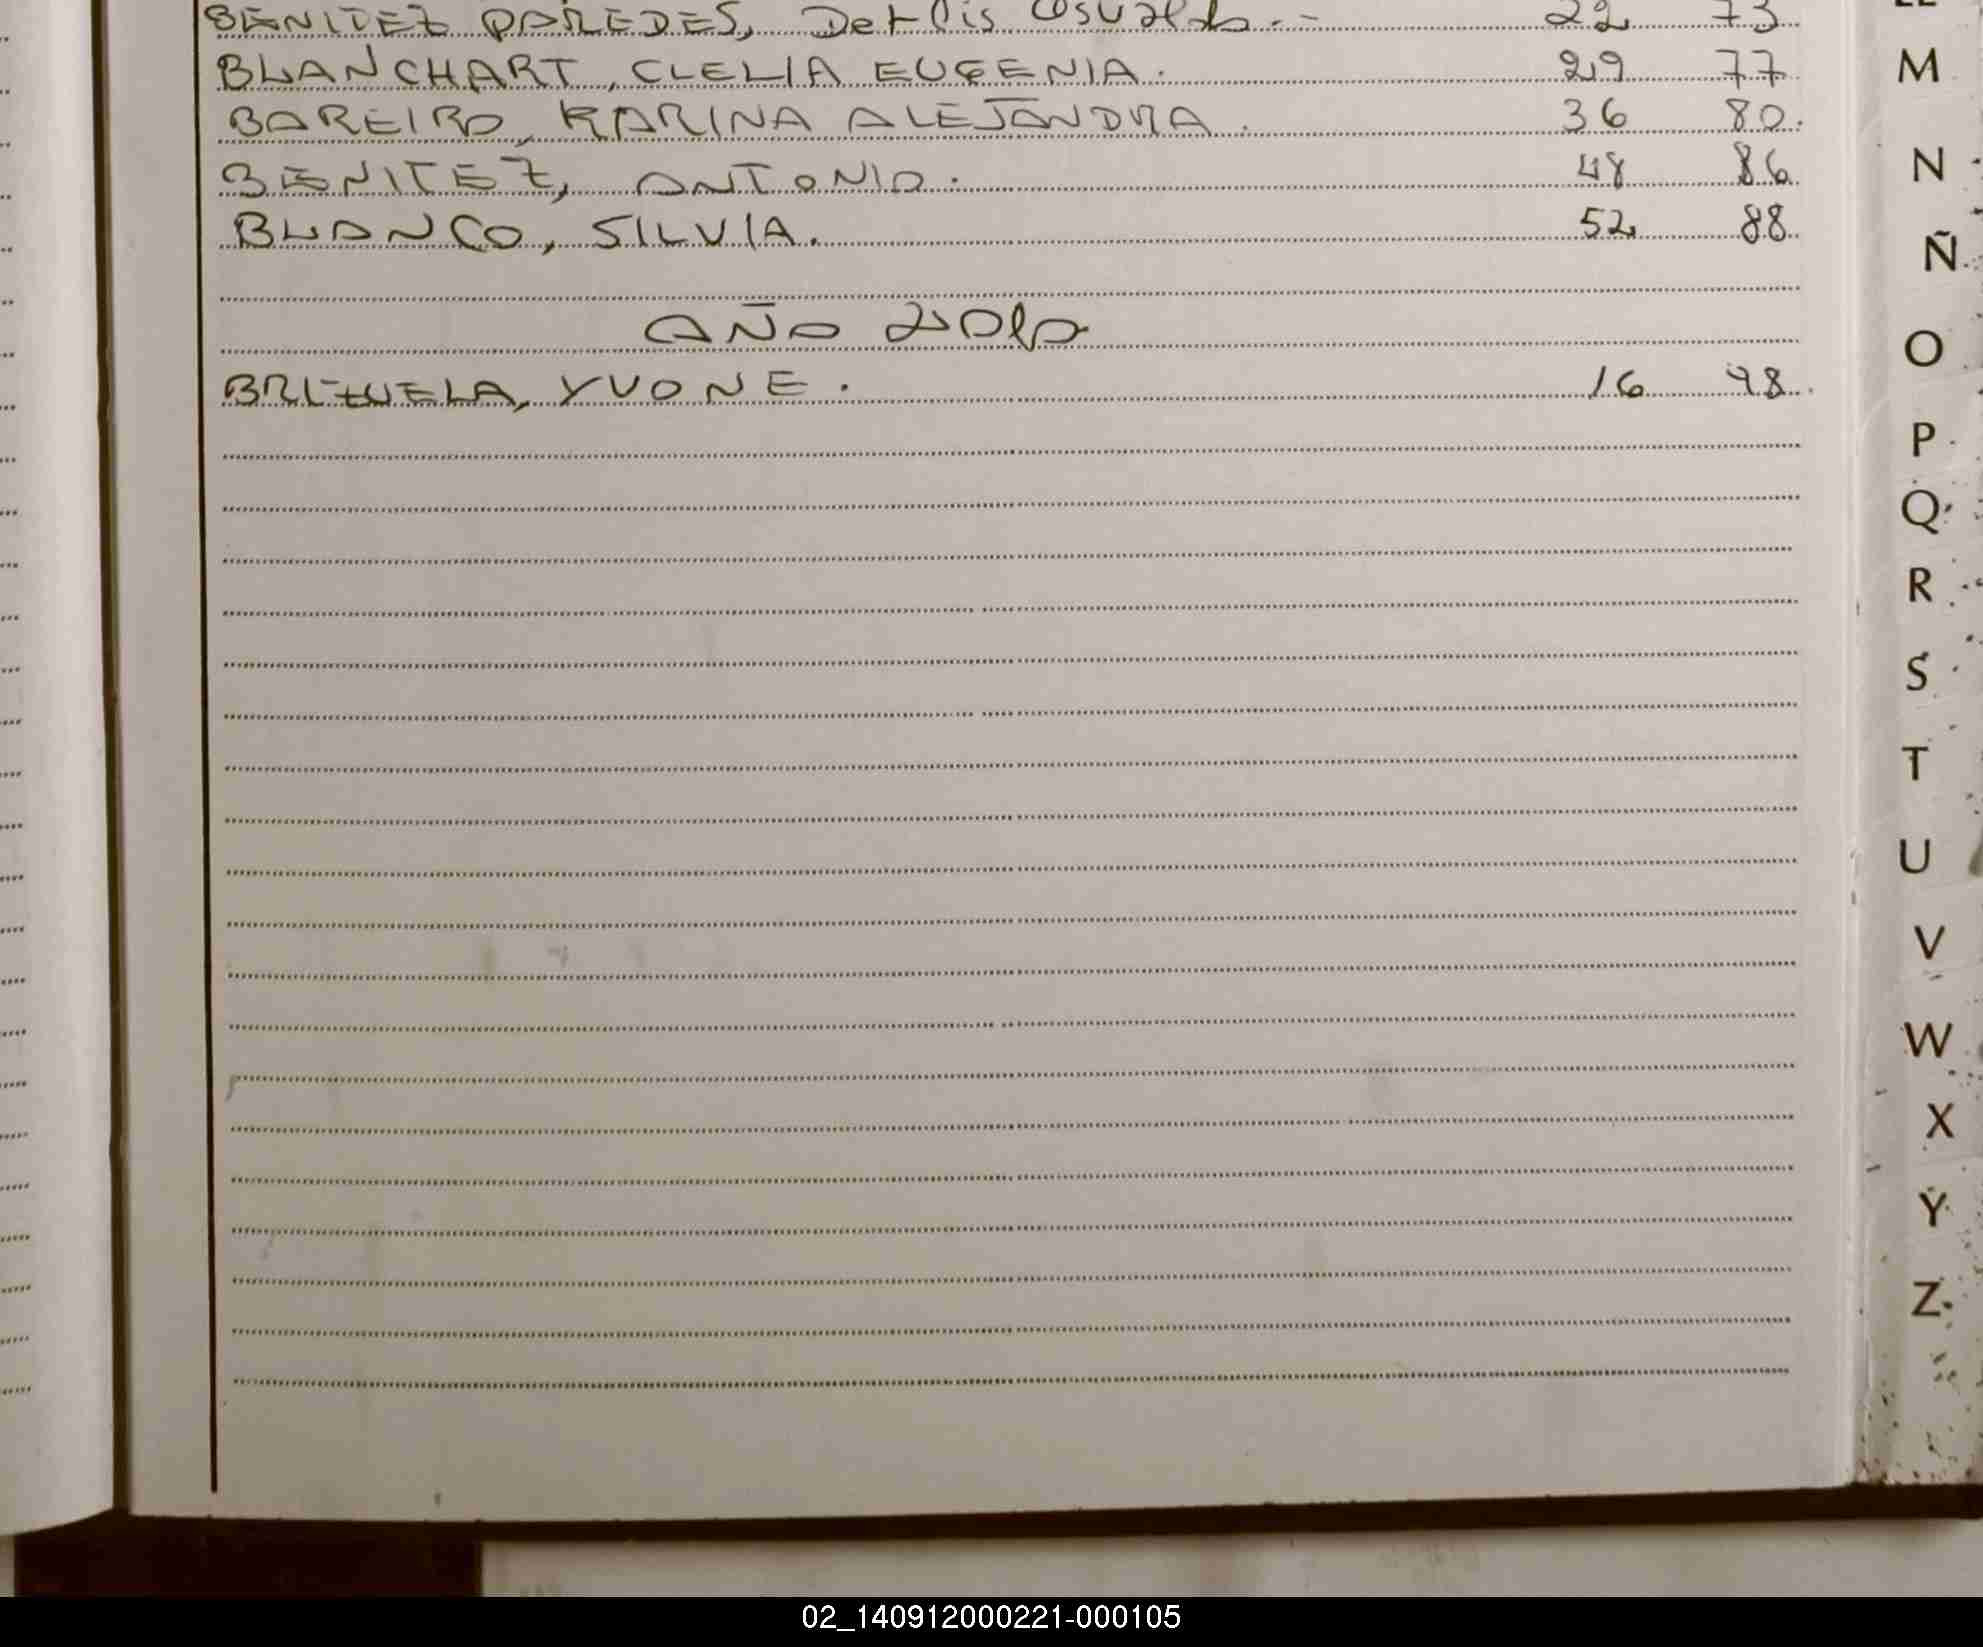 BENITEZ PAREDES, Derlis Osvaldo.- 22 73
BLANCHART, CLELIA EUGENIA. 29 77
BAREIRO, KARINA ALEJANDRA. 36 80.
BENITEZ, ANTONIO. 48 86
BLANCO, SILVIA. 52 88
AÑO 2010
BRIZUELA, YVONE. 16 98.
M
N
Ñ
O
P
Q
R
S
T
U
V
W
X
Y
Z
02_140912000221-000105